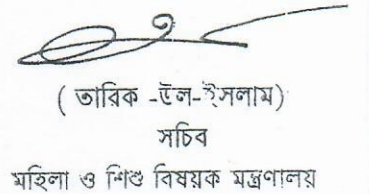 ( তারিক -উল-ইসলাম)
সচিব
মহিলা ও শিশু বিষয়ক মন্ত্রণালয়